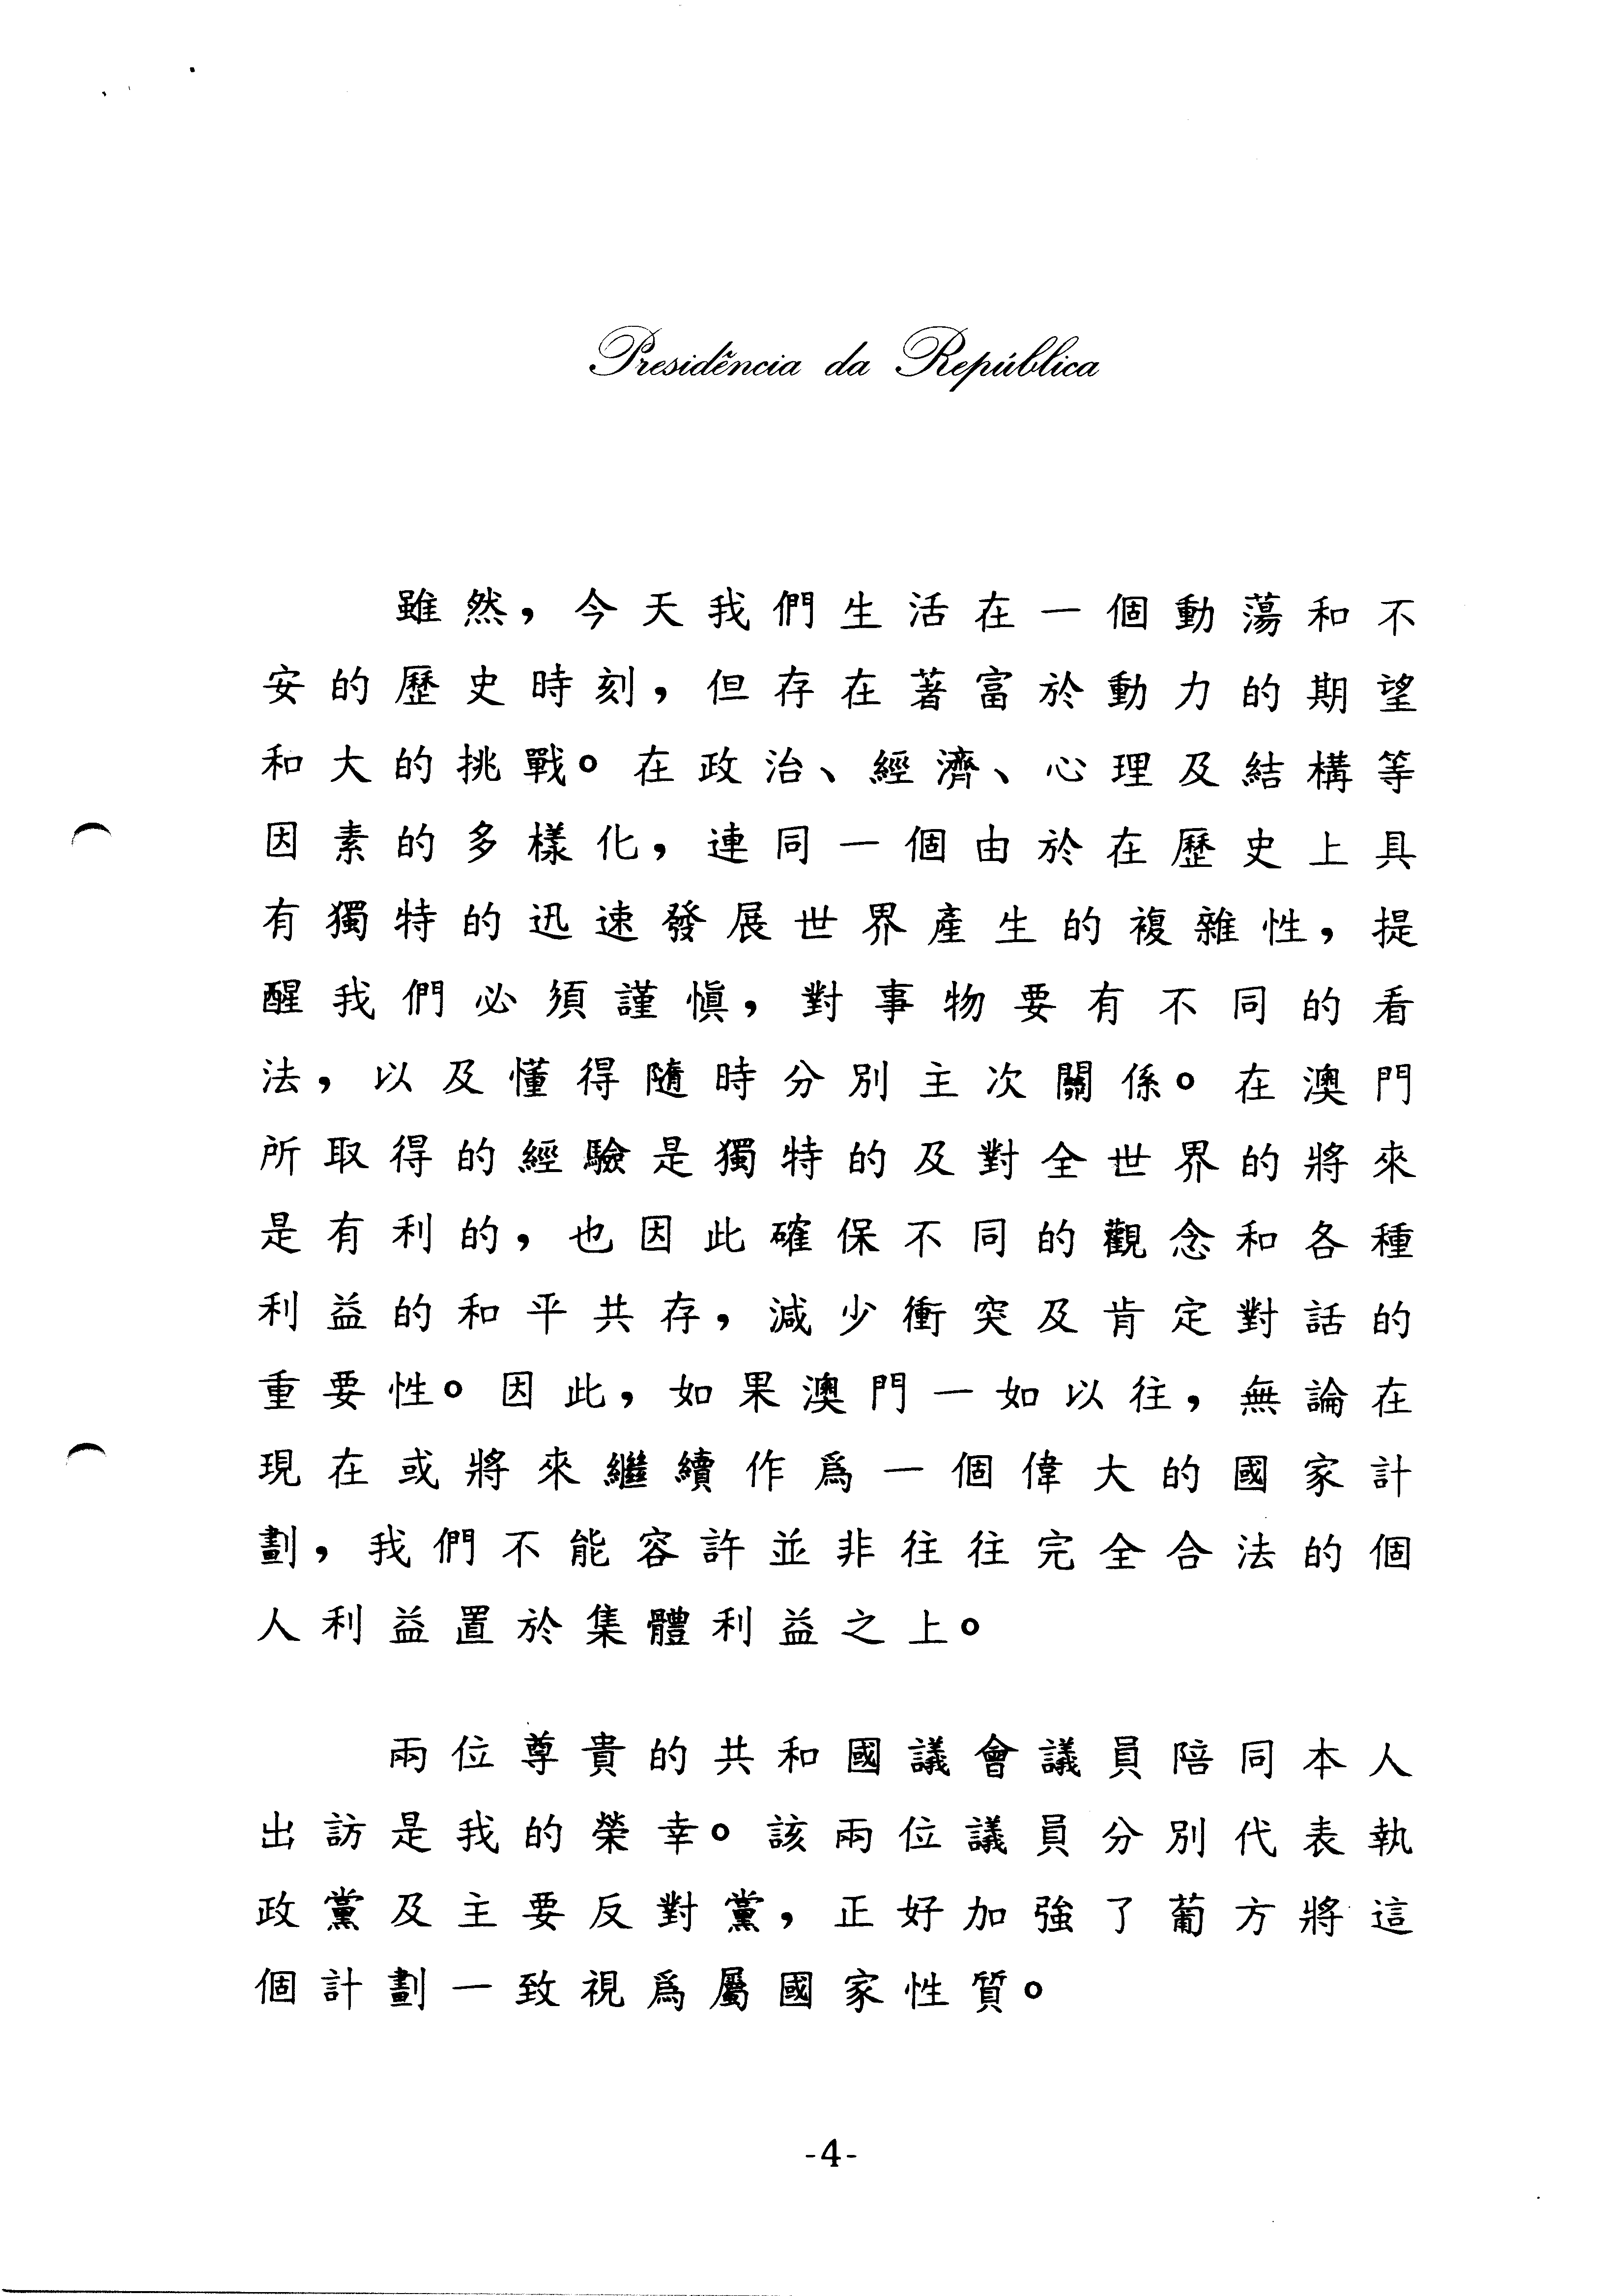 Presidência da República
雖然，今天我們生活在一個動蕩和不
安的歷史時刻，但存在著富於動力的期望
和大的挑戰。在政治、經濟、心理及結構等
因素的多樣化，連同一個由於在歷史上具
有獨特的迅速發展世界產生的複雜性，提
醒我們必須謹慎，對事物要有不同的看
法，以及懂得隨時分別主次關係。在澳門
所取得的經驗是獨特的及對全世界的將來
是有利的，也因此確保不同的觀念和各種
利益的和平共存，減少衝突及肯定對話的
重要性。因此，如果澳門一如以往，無論在
現在或將來繼續作爲一個偉大的國家計
劃，我們不能容許並非往往完全合法的個
人利益置於集體利益之上。
兩位尊貴的共和國議會議員陪同本人
出訪是我的榮幸。該兩位議員分別代表執
政黨及主要反對黨，正好加強了葡方將這
個計劃一致視爲屬國家性質。
-4-